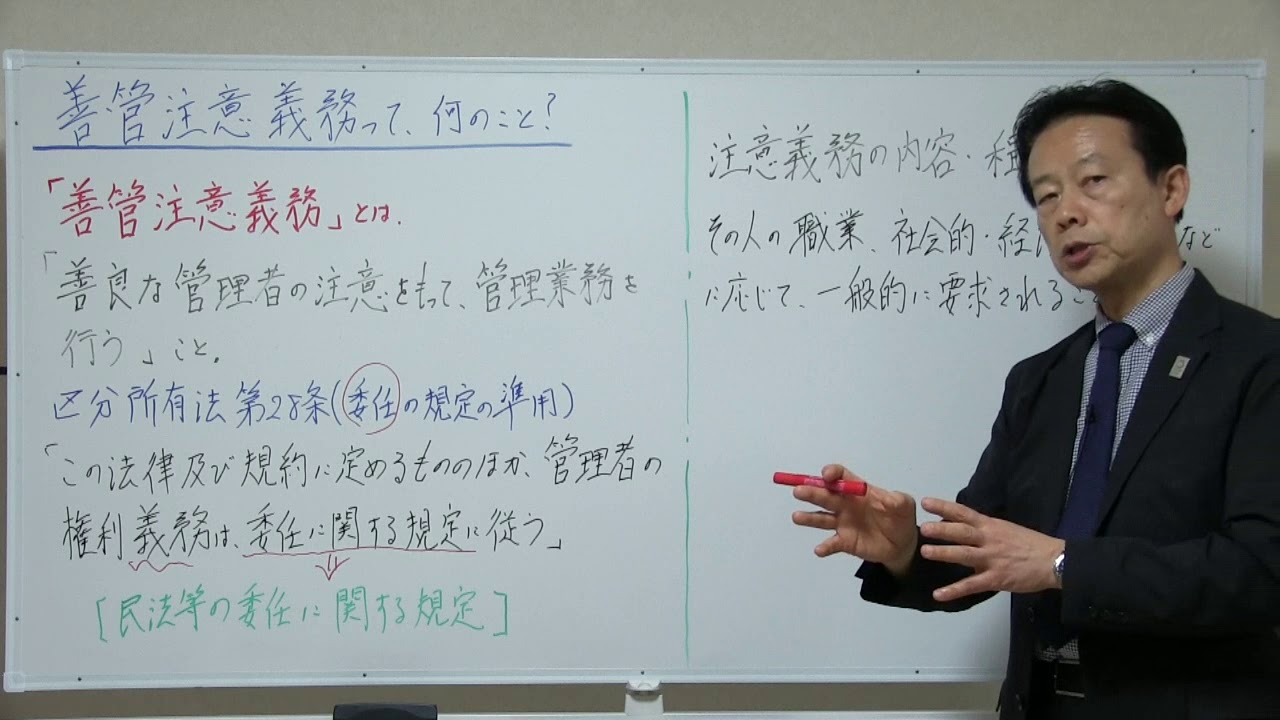 善管注意義務って、何のこと?
「善管注意義務」とは、
「善良な管理者の注意をもって、管理業務を
行う」こと。
区分所有法第28条(委任の規定の準用)
「この法律及び規約に定めるもののほか、管理者の
権利義務は、委任に関する規定に従う」
[民法等の委任に関する規定]
注意義務の内容・種
その人の職業、社会的・経 など
に応じて、一般的に要求されるこ